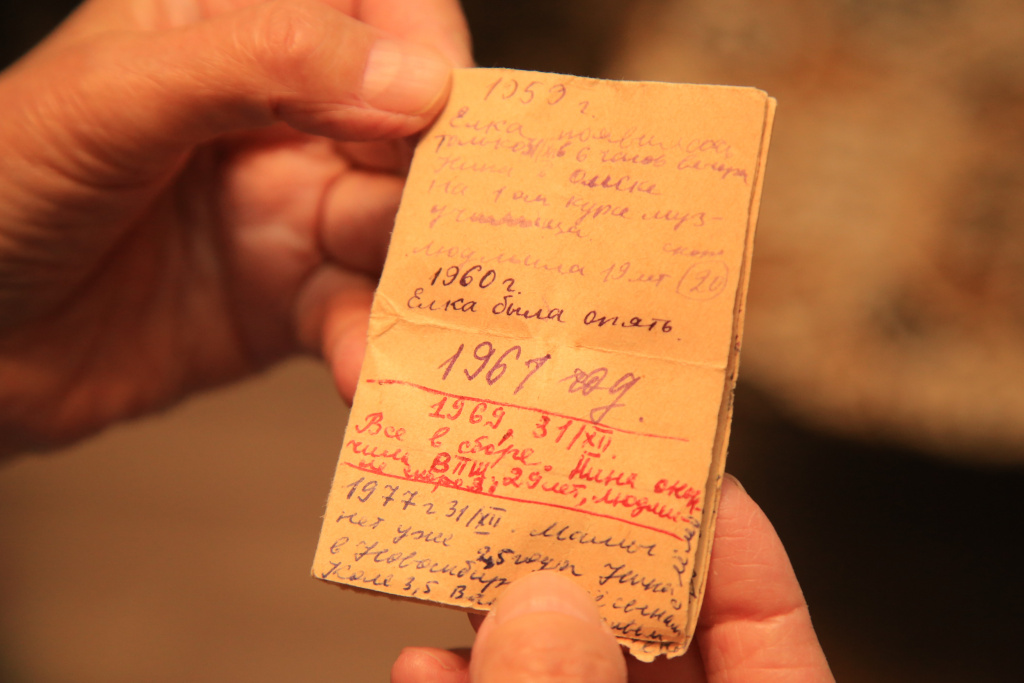 1959 г.
Елка появилась
только в 6 часов вечера
Нина в Омске
на 1ом курсе муз-
училища.
Людмила 19 лет (20)
1960 г.
Елка была опять
1961 год.
1969, 31/XII.
Все в сборе. Нина окон-
чила ВПШ, 29 лет, Людми-
ле
1977 г 31/XII. Мамы
нет уже 2,5 года Нина
в Новосибир
Коле 3,5